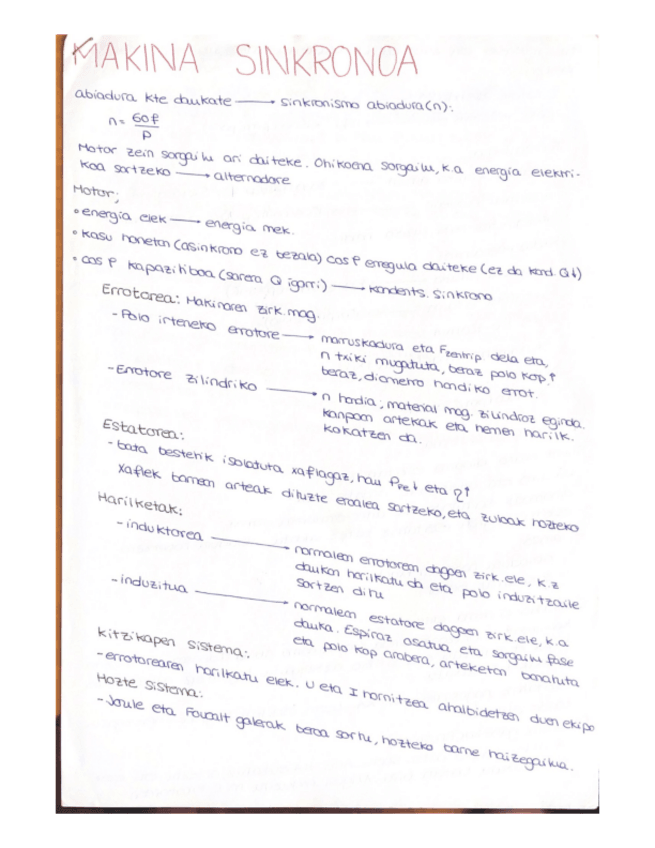 MAKINA SINKRONOA
abiadura kte daukate → sinkronismo abiadura(n):
n = 60f / p
Motor zein sorgailu ari daiteke. Ohikoena sorgailu, k.a energia elektri-
koa sortzeko → alternadore
Motor;
• energia elek → energia mek.
• kasu honetan (asinkrono ez bezala) cos φ erregula daiteke (ez da kond. Q↓)
• cos φ kapazitiboa (sarera Q igorri) → kondents. sinkrono
Errotorea: Makinaren zirk. mag.
- Polo irteneko errotore → marruskadura eta Fzentrip dela eta,
n txiki mugatuta, beraz polo kop.↑
beraz, diametro handiko errot.
- Errotore zilindriko → n handia; material mag. zilindroz eginda.
kanpoan artekak eta hemen harilk.
kokatzen da.
Estatorea:
- bata bestetik isolatuta xaflagaz, hau PFe↓ eta η↑
xaflek barnean arteak dituzte eroalea sartzeko, eta zuloak hozteko
Harilketak:
- induktorea → normalean errotorean dagoen zirk. ele, k.z
daukan harilkatu da eta polo induzitzaile
sortzen ditu
- induzitua → normalean estatore dagoen zirk. ele, k.a
dauka. Espiraz osatua eta sorgailu fase
eta polo kop arabera, arteketan banatuta
kitzikapen sistema:
- errotorearen harilkatu elek. U eta I hornitzea ahalbidetzen duen ekipo
Hozte sistema:
- Joule eta Foucalt galerak beroa sortu, hozteko barne haizegailua.